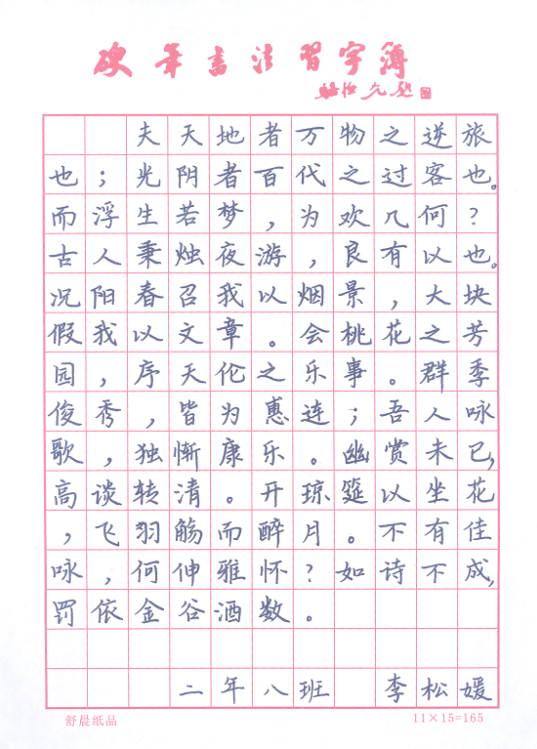 硬笔书法习字簿
夫天地者万物之逆旅
也；光阴者百代之过客也。
而浮生若梦，为欢几何？
古人秉烛夜游，良有以也。
况阳春召我以烟景，大块
假我以文章。会桃花之芳
园，序天伦之乐事。群季
俊秀，皆为惠连；吾人咏
歌，独惭康乐。幽赏未已，
高谈转清。开琼筵以坐花
，飞羽觞而醉月。不有佳
咏，何伸雅怀？如诗不成，
罚依金谷酒数。
二年八班 李松媛
舒晨纸品 11×15=165